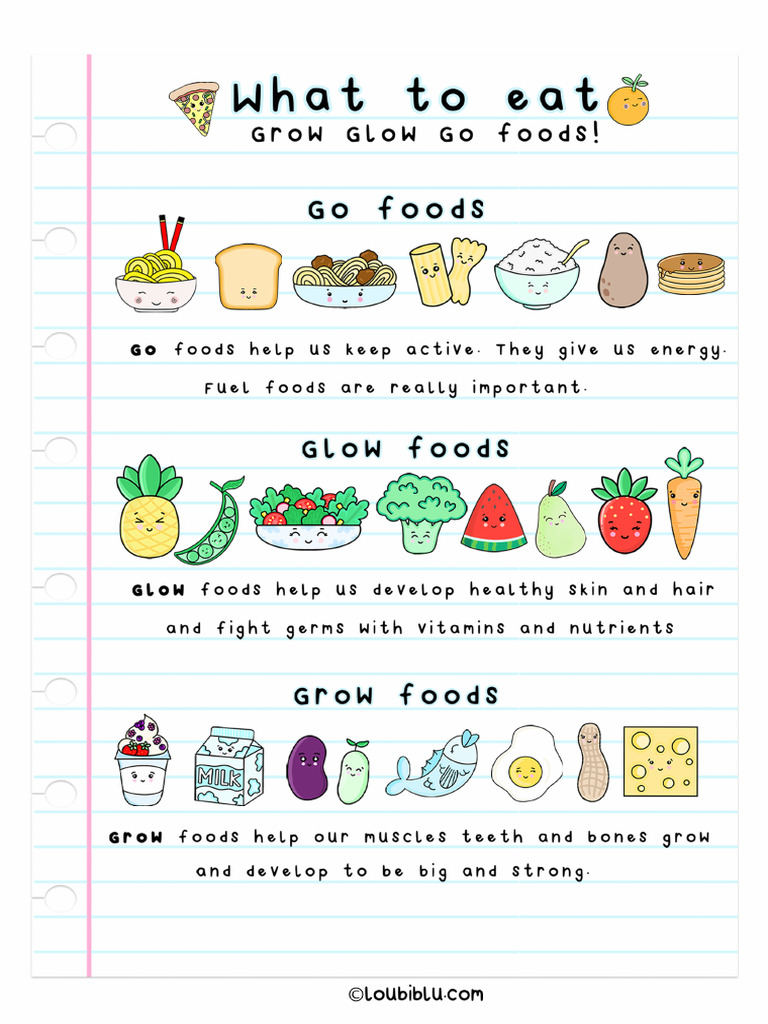 What to eat
Grow Glow Go foods!
Go foods
Go foods help us keep active. They give us energy.
Fuel foods are really important.
Glow foods
Glow foods help us develop healthy skin and hair
and fight germs with vitamins and nutrients
Grow foods
MILK
Grow foods help our muscles teeth and bones grow
and develop to be big and strong.
©loubiblu.com